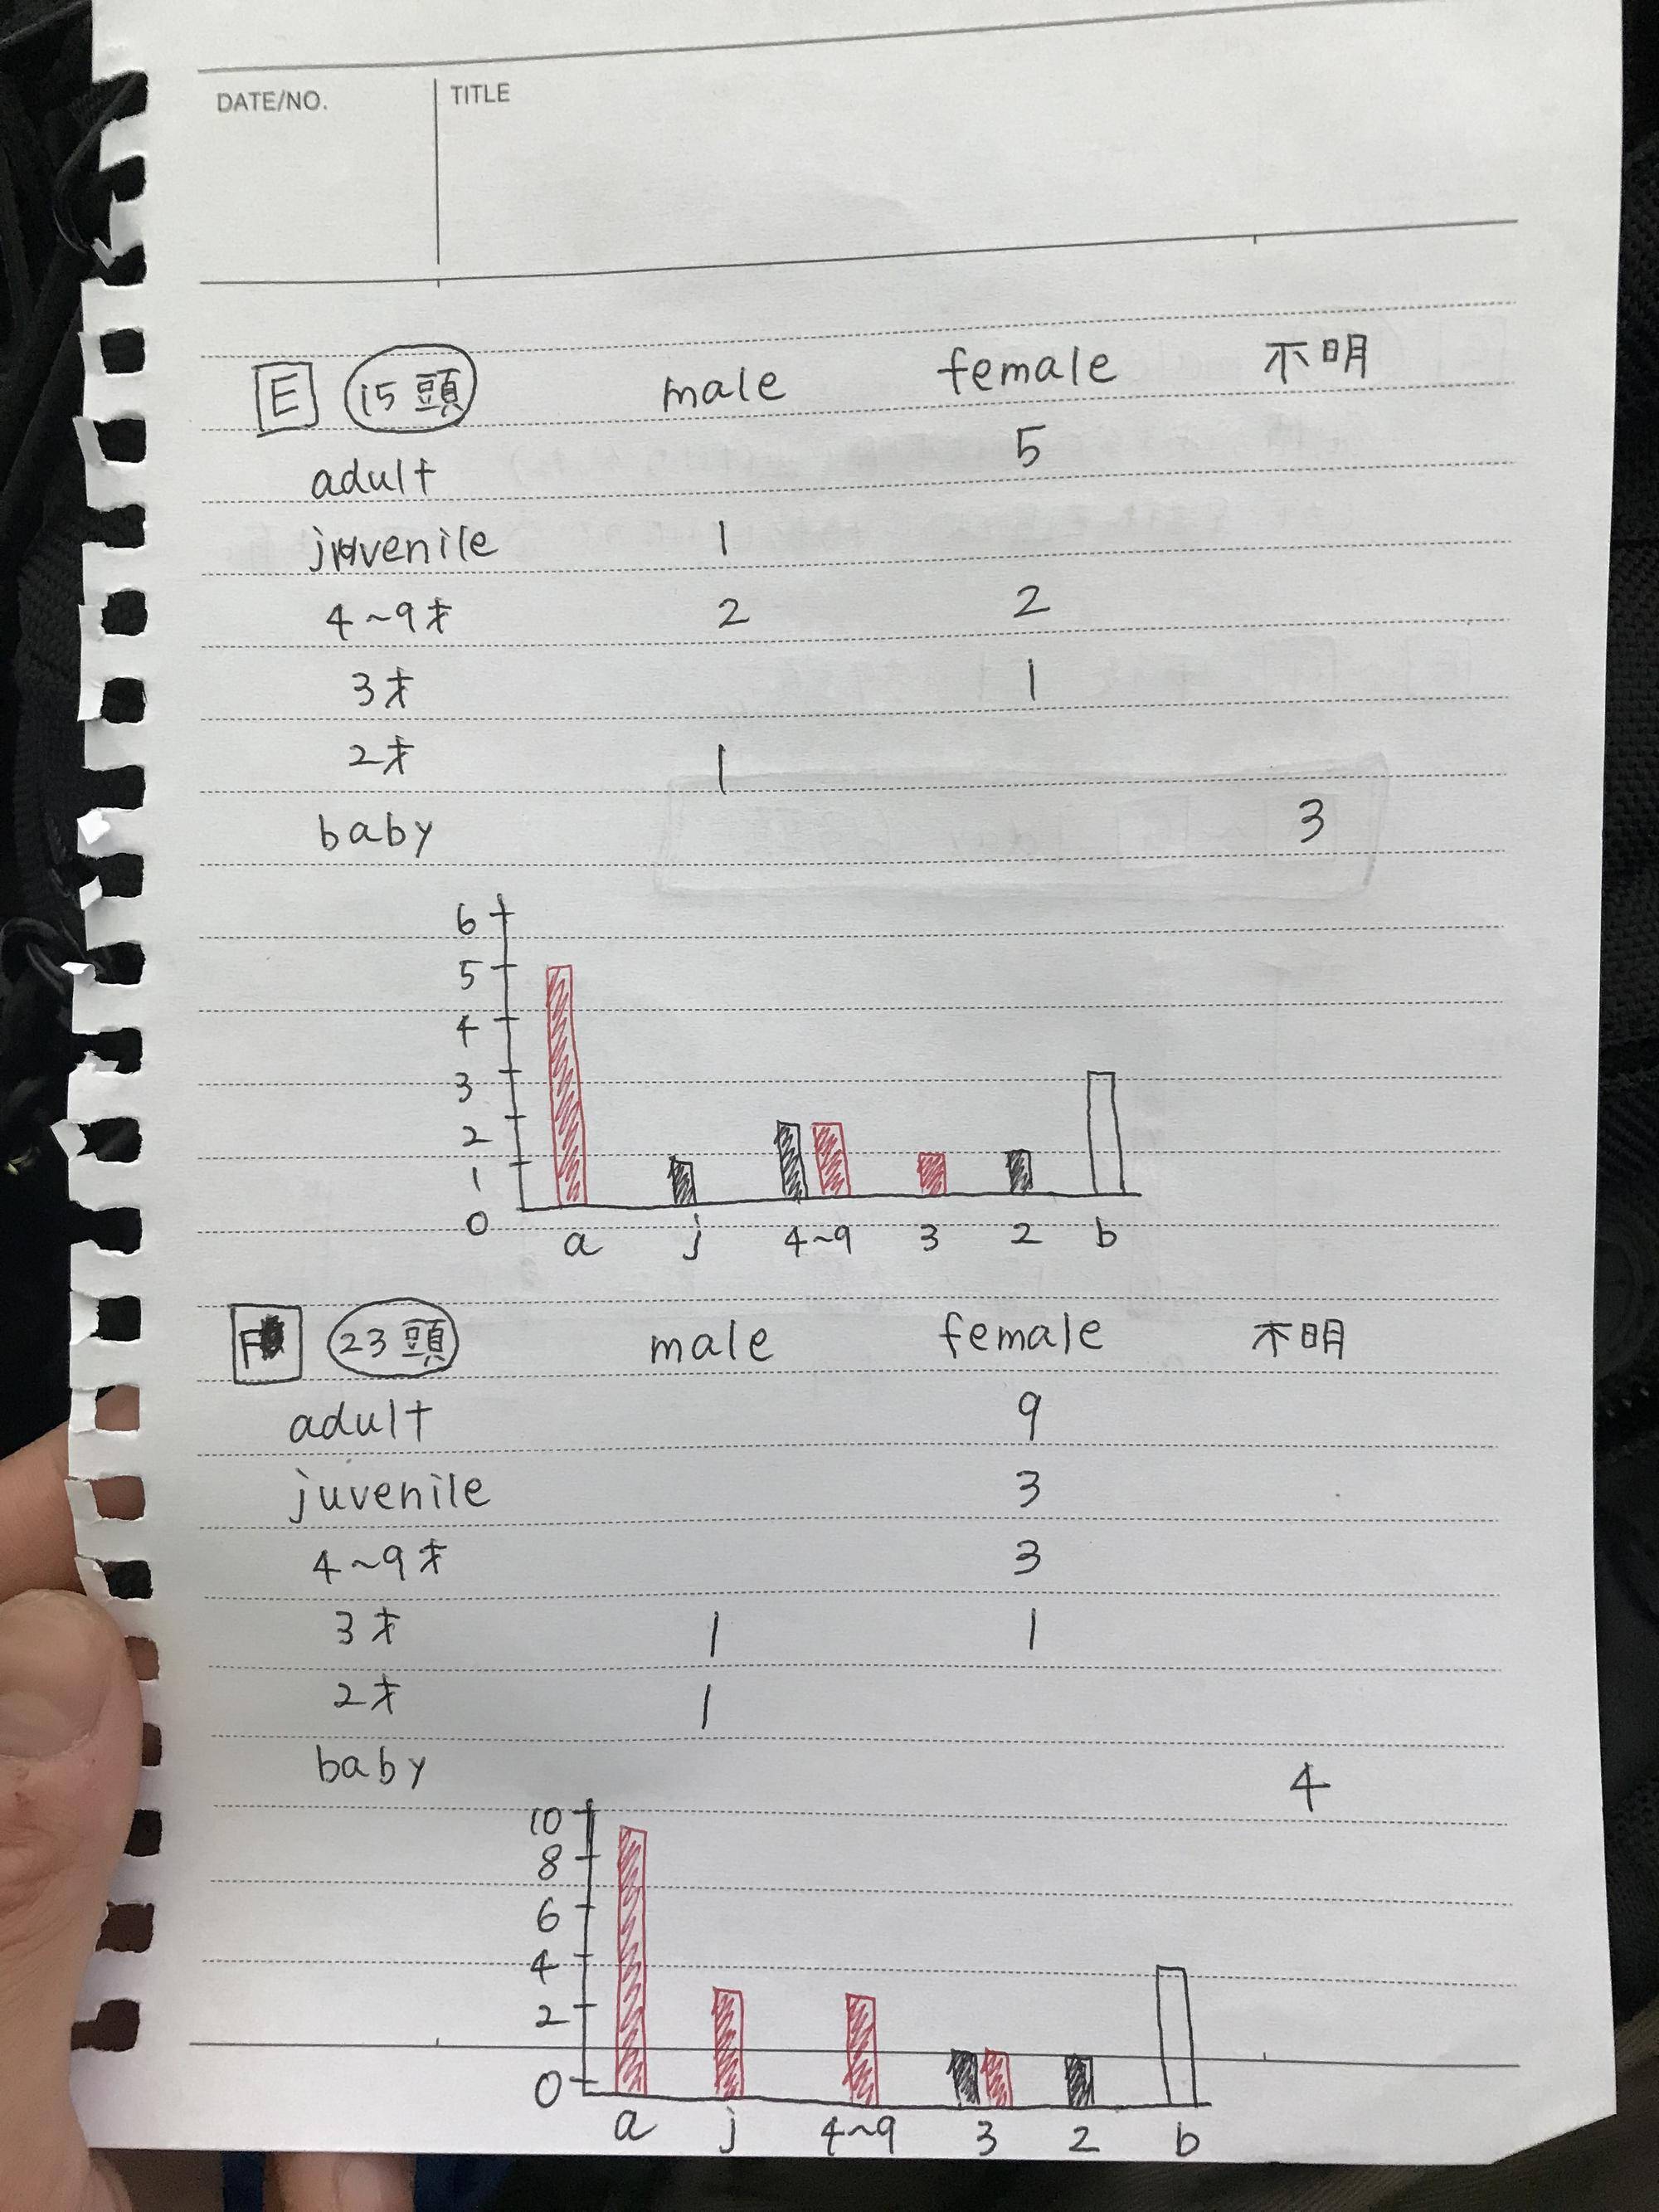 DATE/NO. TITLE
E 15頭 male female 不明
adult 5
juvenile 1
4~9才 2 2
3才 1
2才 1
baby 3
6
5
4
3
2
1
0
a j 4~9 3 2 b
F 23頭 male female 不明
adult 9
juvenile 3
4~9才 3
3才 1 1
2才 1
baby 4
10
8
6
4
2
0
a j 4~9 3 2 b